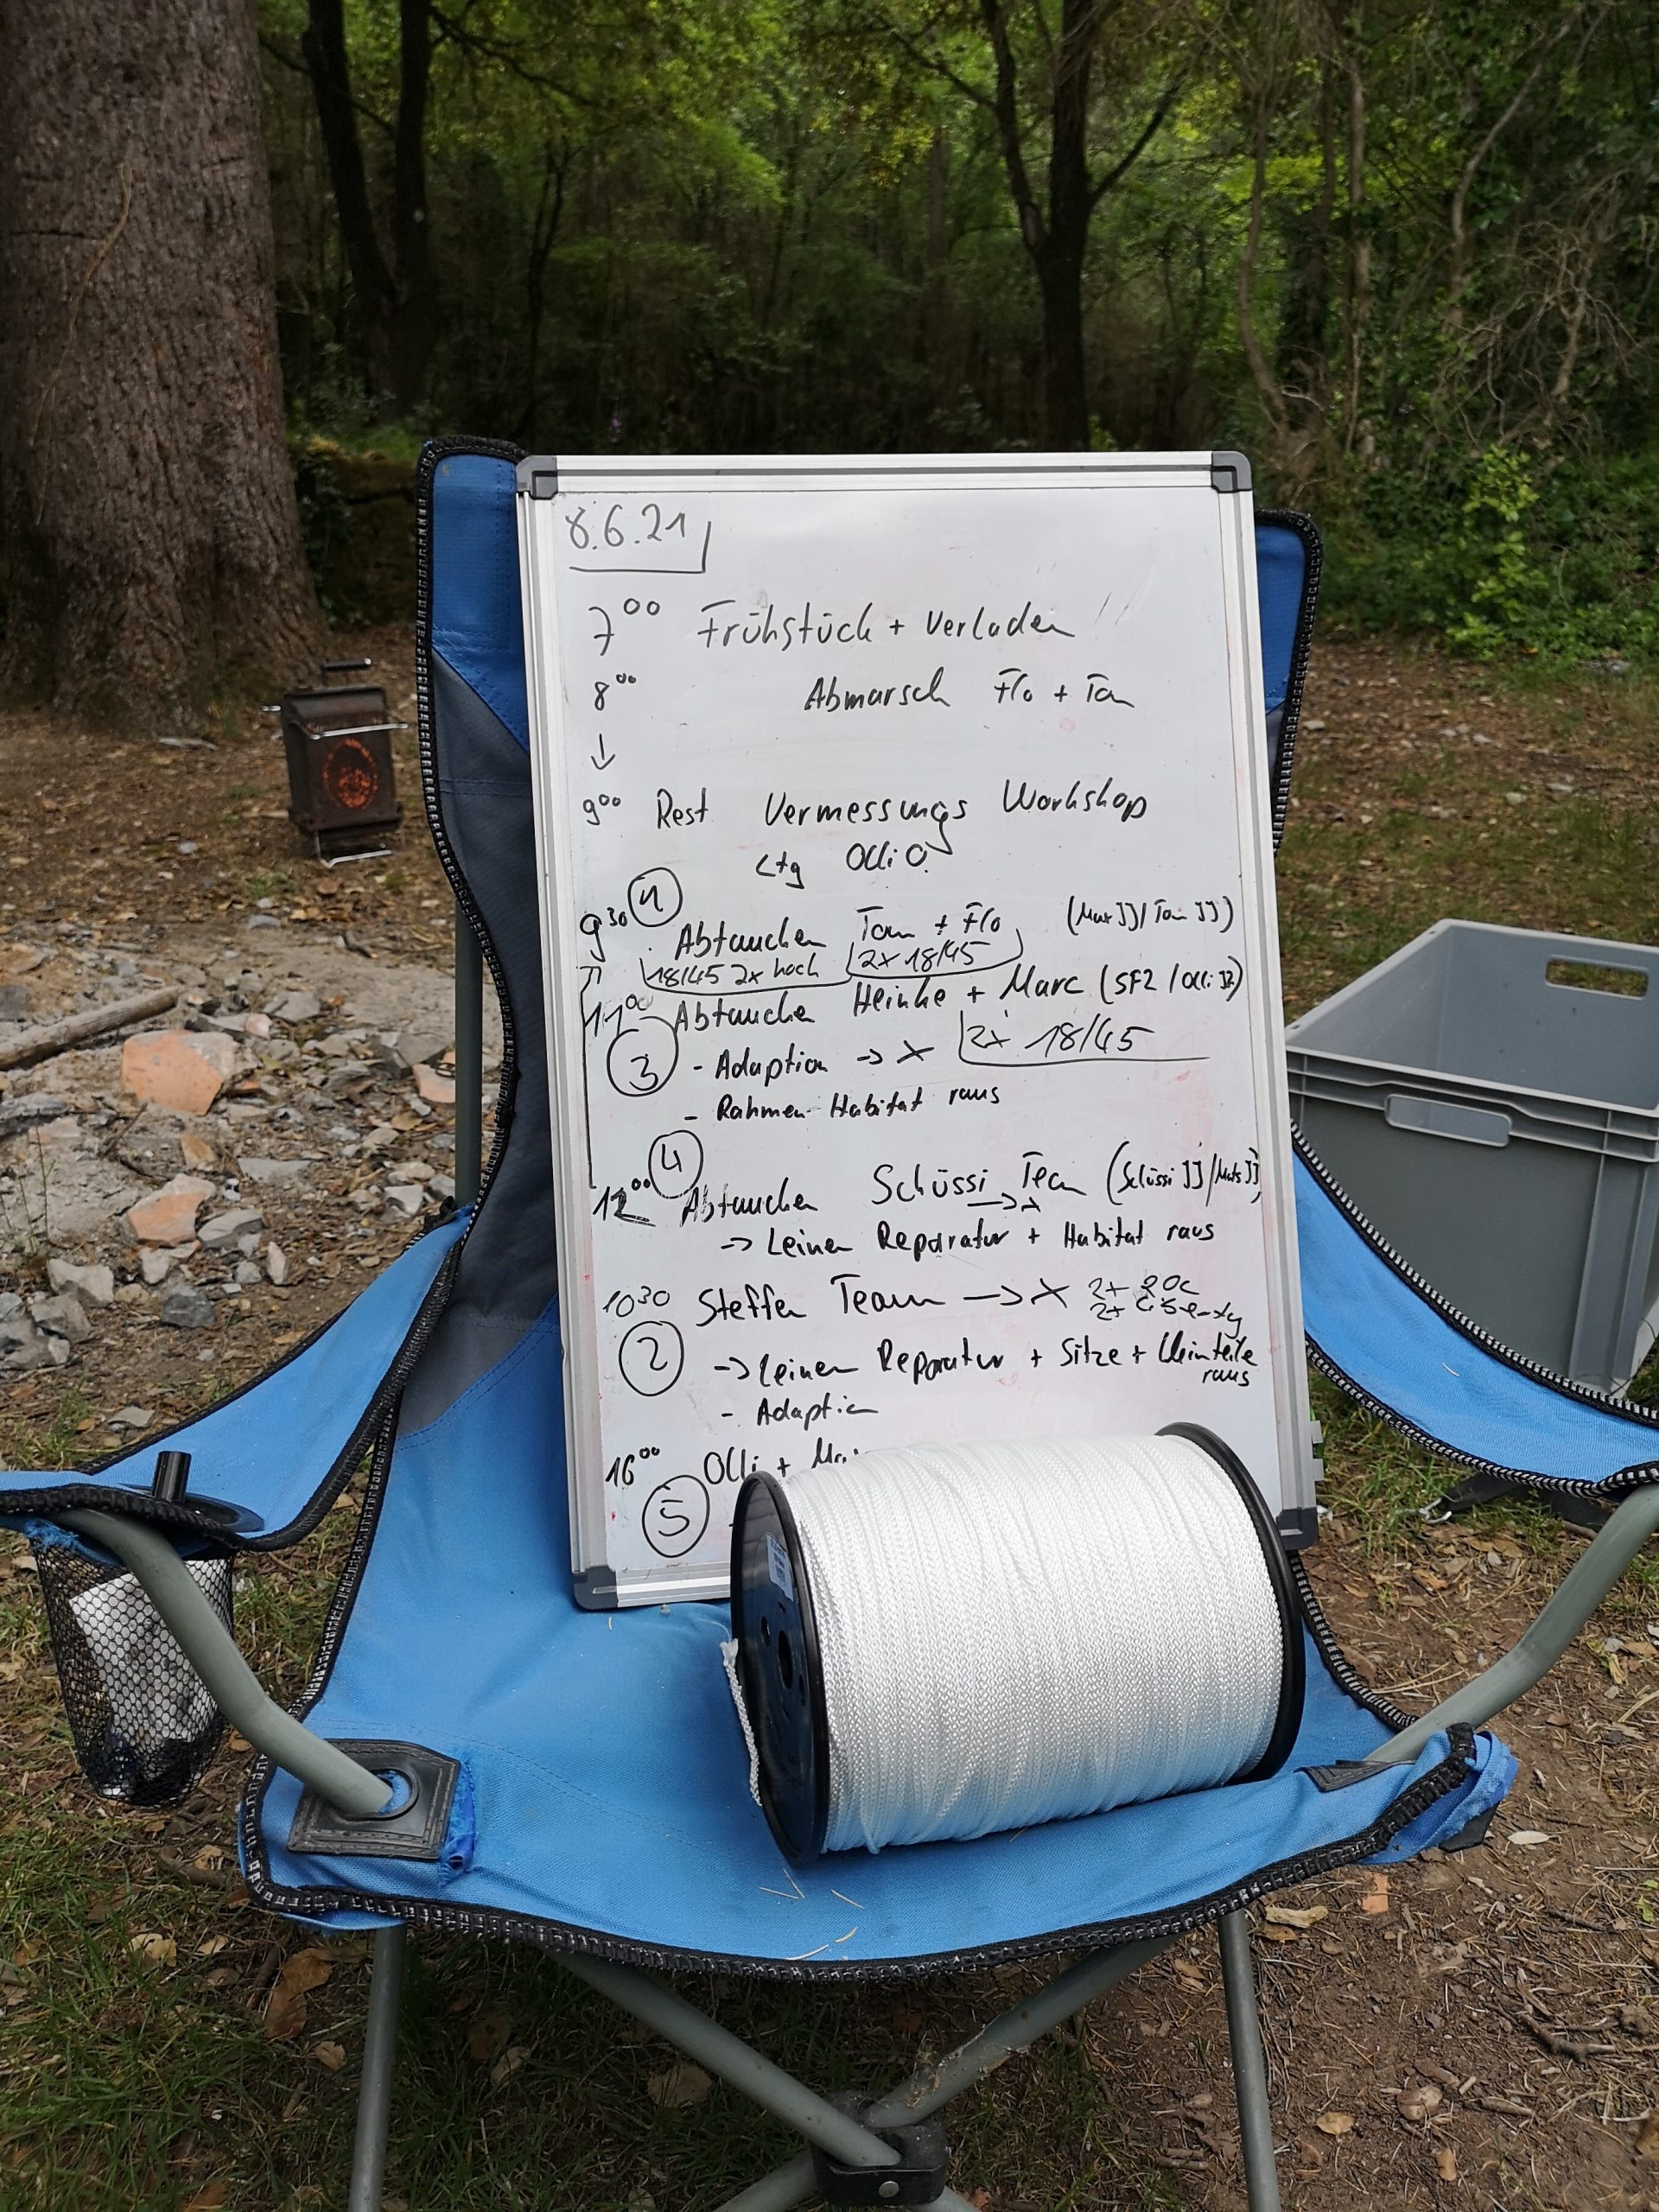 8.6.21
7⁰⁰ Frühstück + Verladen
8⁰⁰ Abmarsch Flo + Tom
↓
9⁰⁰ Rest Vermessungs Workshop
Ltg Olli
9³⁰ ① Abtauchen Tom + Flo
18/45 2x hoch 2x 18/45
11⁰⁰ Abtauchen Heinke + Marc
③ - Adaption -> X 2x 18/45
- Rahmen Habitat raus
④
12⁰⁰ Abtauchen Schüssi Team
-> Leinen Reparatur + Habitat raus
10³⁰ Steffen Team -> X
② -> Leinen Reparatur + Sitze + Kleinteile
raus
- Adaption
16⁰⁰ Olli +
⑤